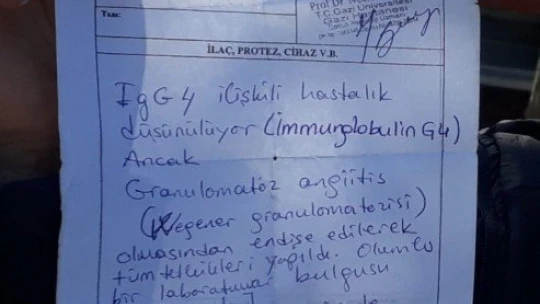 Tanı:
Prof.Dr.
T.C Gazi Üniversitesi
Gazi Hastanesi
İLAÇ, PROTEZ, CİHAZ V.B.
IgG4 ilişkili hastalık
düşünülüyor (İmmunglobulin G4)
Ancak
Granulomatöz angiitis
(Wegener granulomatozisi)
olmasından endişe edilerek
tüm tetkikleri yapıldı. Olumlu
bir laboratuvar bulgusu